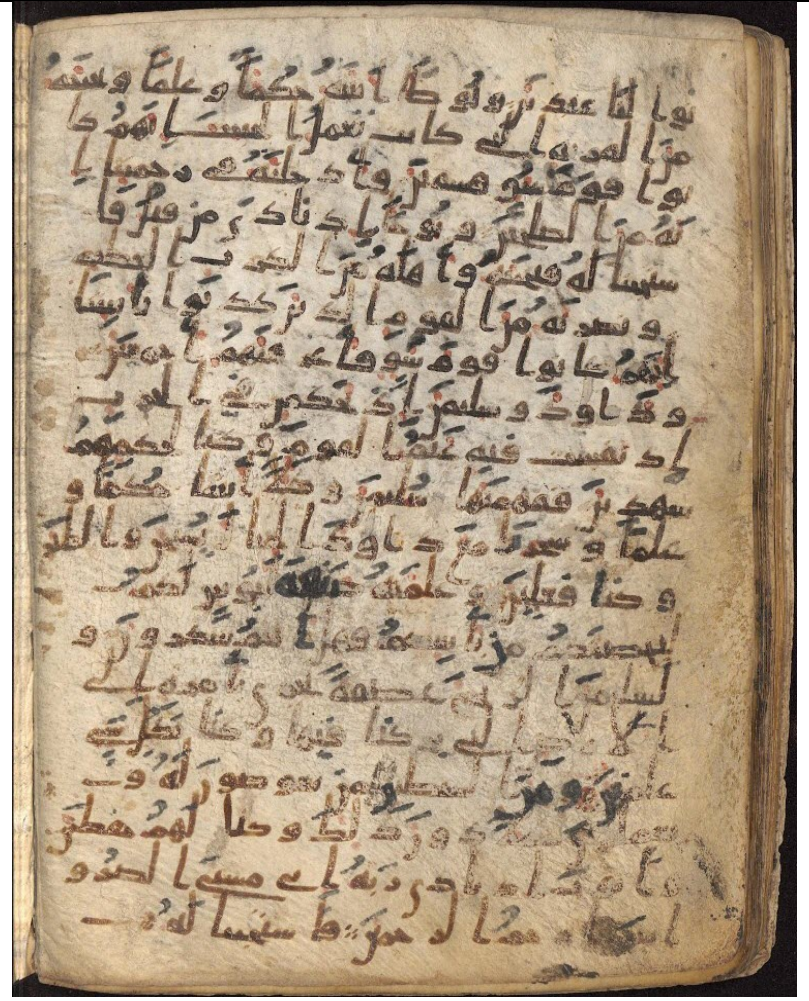 نوا لنا عبدين ولوطا اتينه حكما وعلما ونجينه
من القرية التي كانت تعمل الخبئث انهم كا
نوا قوم سوء فسقين وادخلنه في رحمتنا ا
نه من الصلحين ونوحا اذ نادى من قبل فا
ستجبنا له فنجينه واهله من الكرب العظيم
ونصرنه من القوم الذين كذبوا بايتنا
انهم كانوا قوم سوء فاغرقنهم اجمعين
وداود وسليمن اذ يحكمن في الحرث
اذ نفشت فيه غنم القوم وكنا لحكمهم
شهدين ففهمنها سليمن وكلا اتينا حكما و
علما وسخرنا مع داود الجبال يسبحن والطير
وكنا فعلين وعلمنه صنعة لبوس لكم
لتحصنكم من باسكم فهل انتم شكرون و
لسليمن الريح عاصفة تجري بامره الى
الارض التي بركنا فيها وكنا بكل شي
علمين ومن الشيطين من يغوصون له و
يعملون دون ذلك وكنا لهم حفظين
وايوب اذ نادى ربه اني مسني الضر و
ارحم الرحمين فاستجبنا له